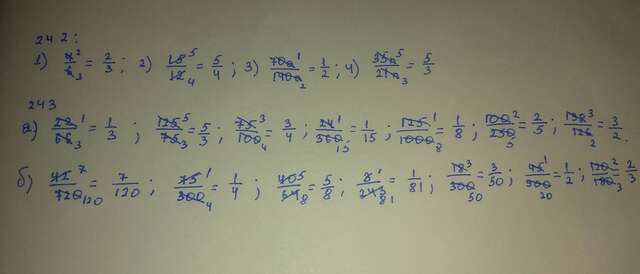 242:
1) 4²/6₃ = 2/3; 2) 15⁵/12₄ = 5/4; 3) 70¹/140₂ = 1/2; 4) 35⁵/21₃ = 5/3
243
а) 1/3; 125⁵/75₃ = 5/3; 75³/100₄ = 3/4; 24¹/360₁₅ = 1/15; 125¹/1000₈ = 1/8; 100²/250₅ = 2/5; 3/2.
б) 42⁷/720₁₂₀ = 7/120; 75¹/300₄ = 1/4; 40⁵/64₈ = 5/8; 1/81; 18³/300₅₀ = 3/50; 1/2; 120²/180₃ = 2/3